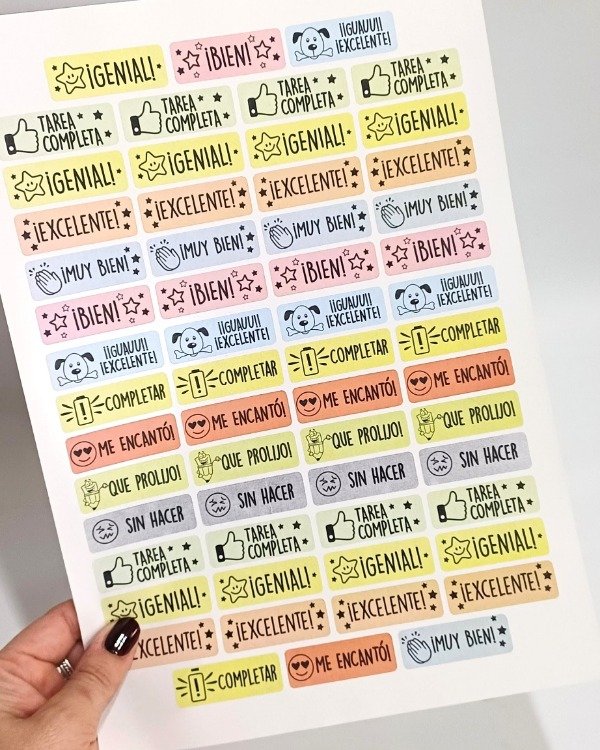 ¡GENIAL! ¡BIEN! ¡¡GUAUU!! ¡EXCELENTE!
TAREA COMPLETA TAREA COMPLETA TAREA COMPLETA TAREA COMPLETA
¡GENIAL! ¡GENIAL! ¡GENIAL! ¡GENIAL!
¡EXCELENTE! ¡EXCELENTE! ¡EXCELENTE! ¡EXCELENTE!
¡MUY BIEN! ¡MUY BIEN! ¡MUY BIEN! ¡MUY BIEN!
¡BIEN! ¡BIEN! ¡BIEN! ¡BIEN!
¡¡GUAUU!! ¡EXCELENTE! ¡¡GUAUU!! ¡EXCELENTE! ¡¡GUAUU!! ¡EXCELENTE! ¡¡GUAUU!! ¡EXCELENTE!
! COMPLETAR ! COMPLETAR ! COMPLETAR ! COMPLETAR
ME ENCANTÓ! ME ENCANTÓ! ME ENCANTÓ! ME ENCANTÓ!
QUE PROLIJO! QUE PROLIJO! QUE PROLIJO! QUE PROLIJO!
SIN HACER SIN HACER SIN HACER SIN HACER
TAREA COMPLETA TAREA COMPLETA TAREA COMPLETA TAREA COMPLETA
¡GENIAL! ¡GENIAL! ¡GENIAL! ¡GENIAL!
EXCELENTE! ¡EXCELENTE! ¡EXCELENTE! ¡EXCELENTE!
! COMPLETAR ME ENCANTÓ! ¡MUY BIEN!